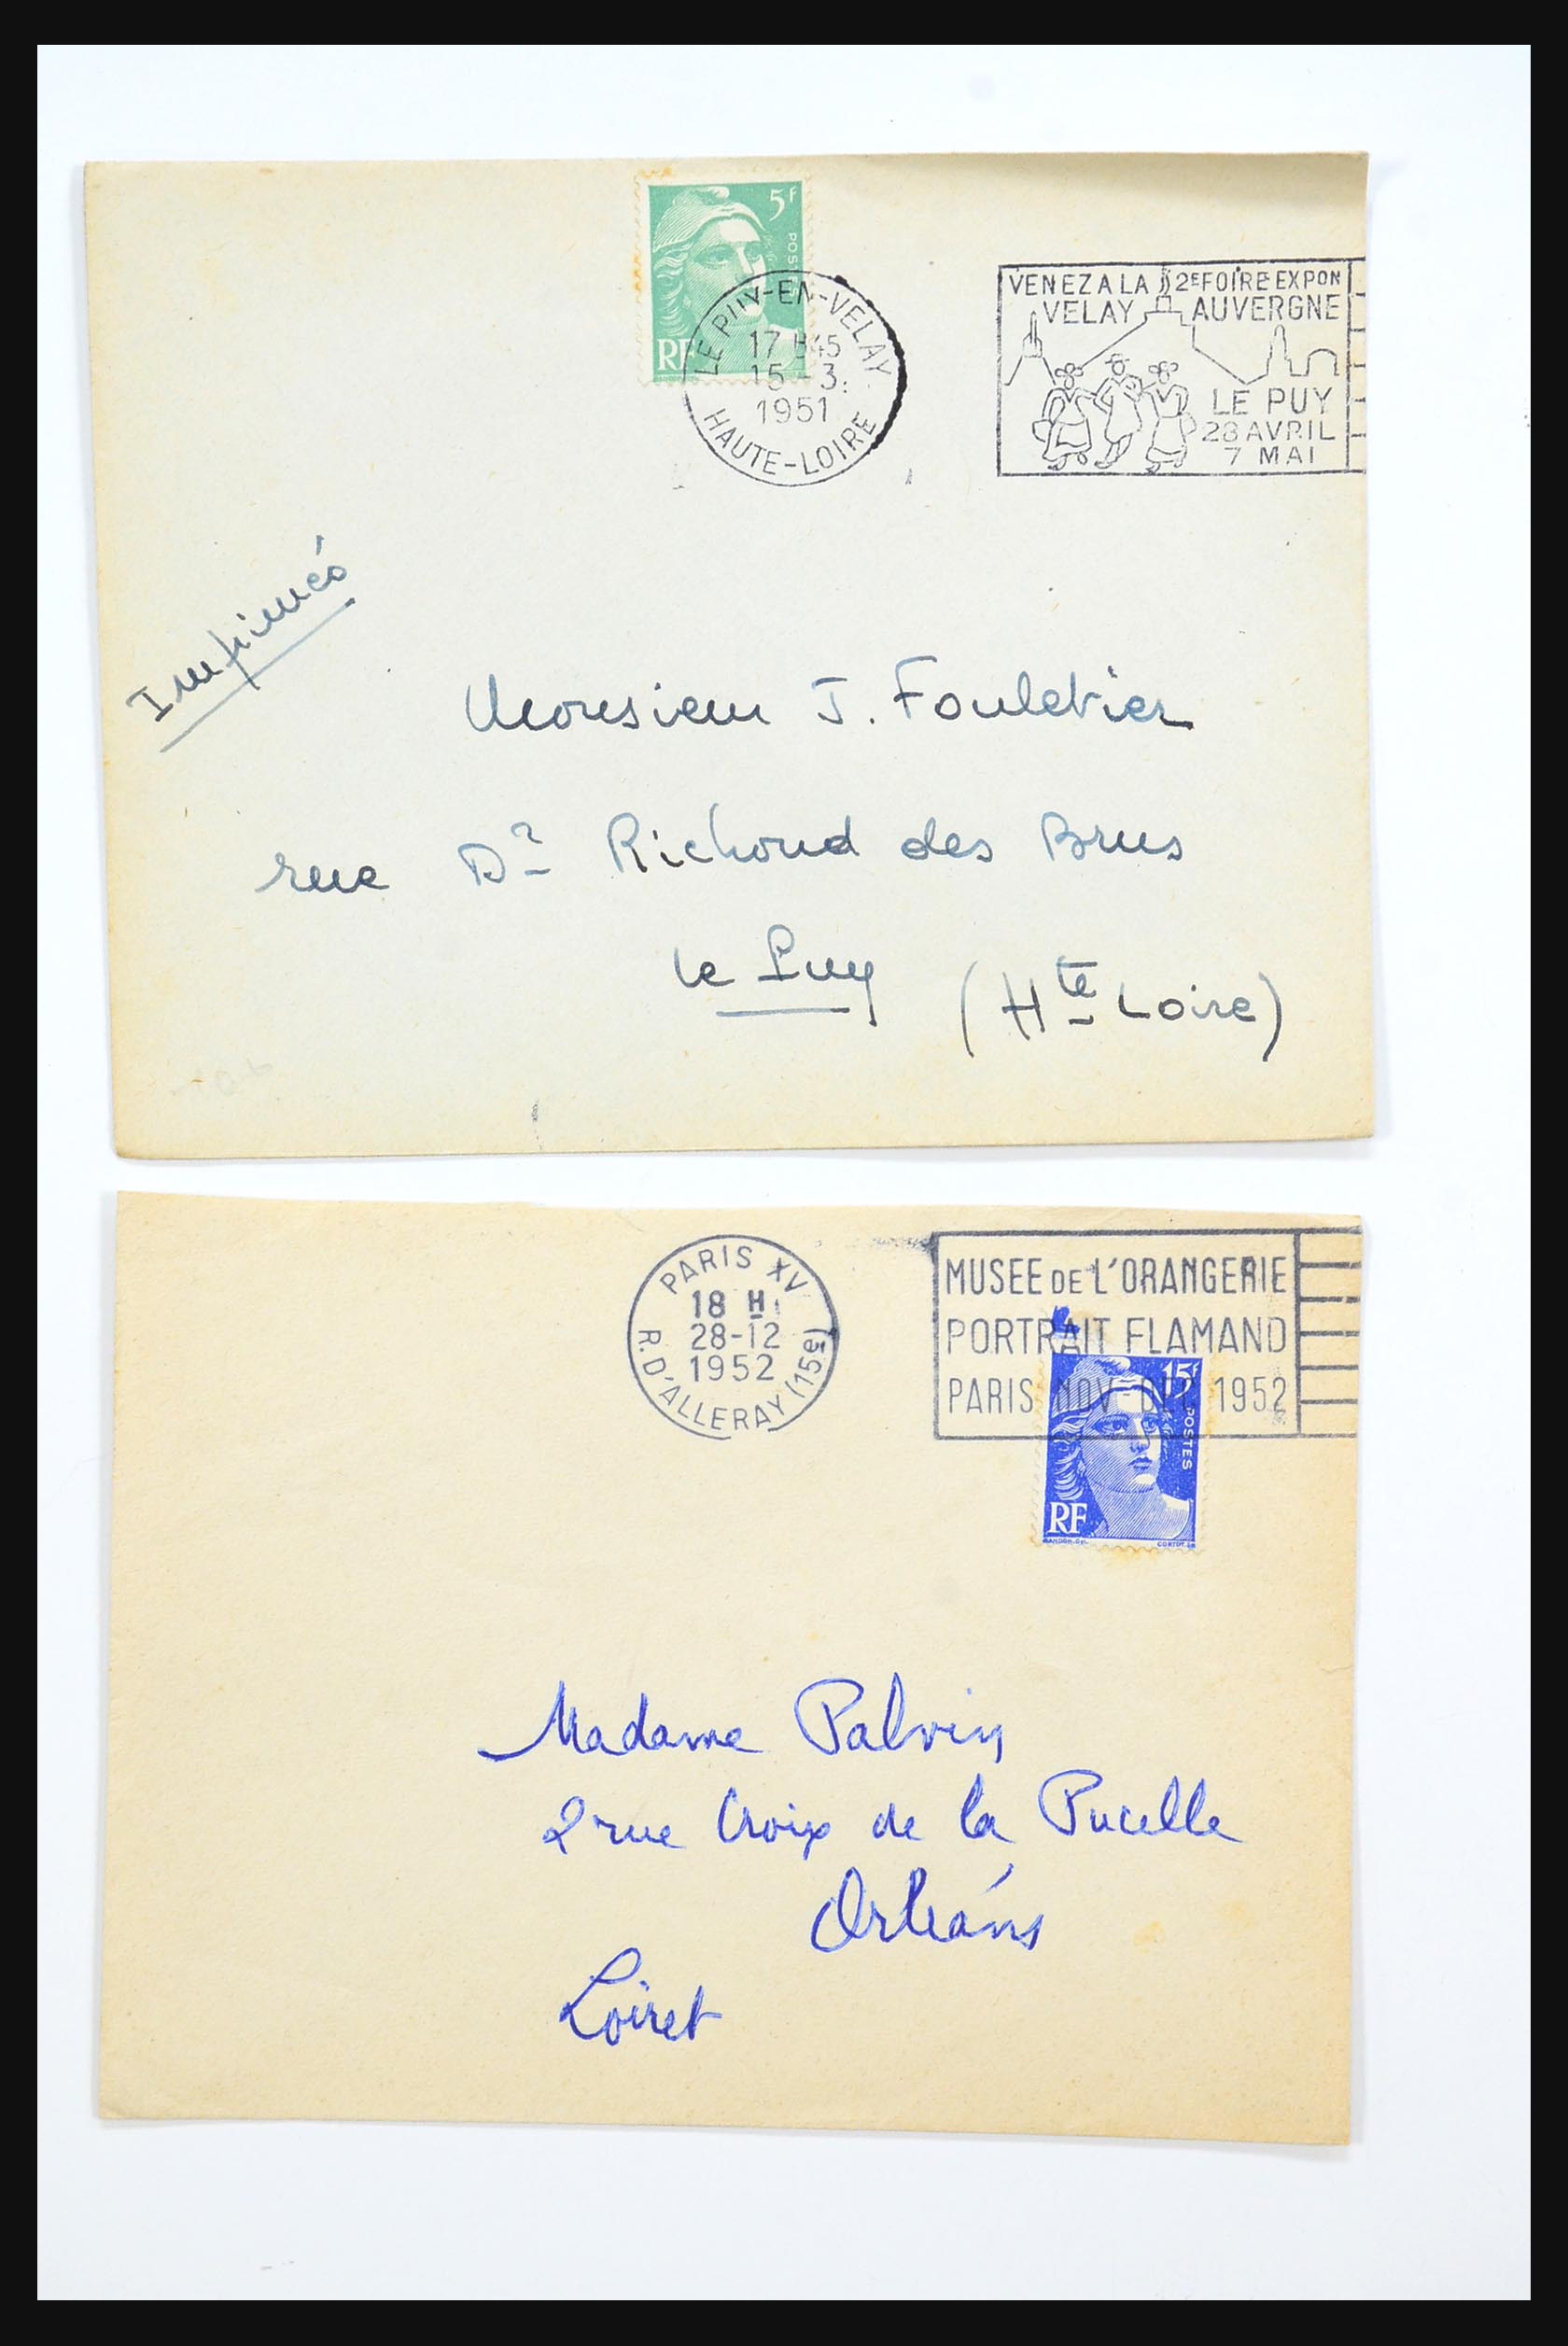 5F
POSTES
RF
LE PUY-EN-VELAY
17 H45
15-3.
1951
HAUTE-LOIRE
VENEZ A LA 2E FOIRE EXPON
VELAY AUVERGNE
LE PUY
28 AVRIL
7 MAI
Imprimés
Monsieur J. Fouletier
rue Dr Richond des Brus
le Puy (Hte Loire)
PARIS XV
18 H
28-12
1952
R. D'ALLERAY (15e)
MUSEE DE L'ORANGERIE
PORTRAIT FLAMAND
PARIS NOV DEC 1952
15F
POSTES
RF
Madame Palvin
2 rue Croix de la Pucelle
Orléans
Loiret